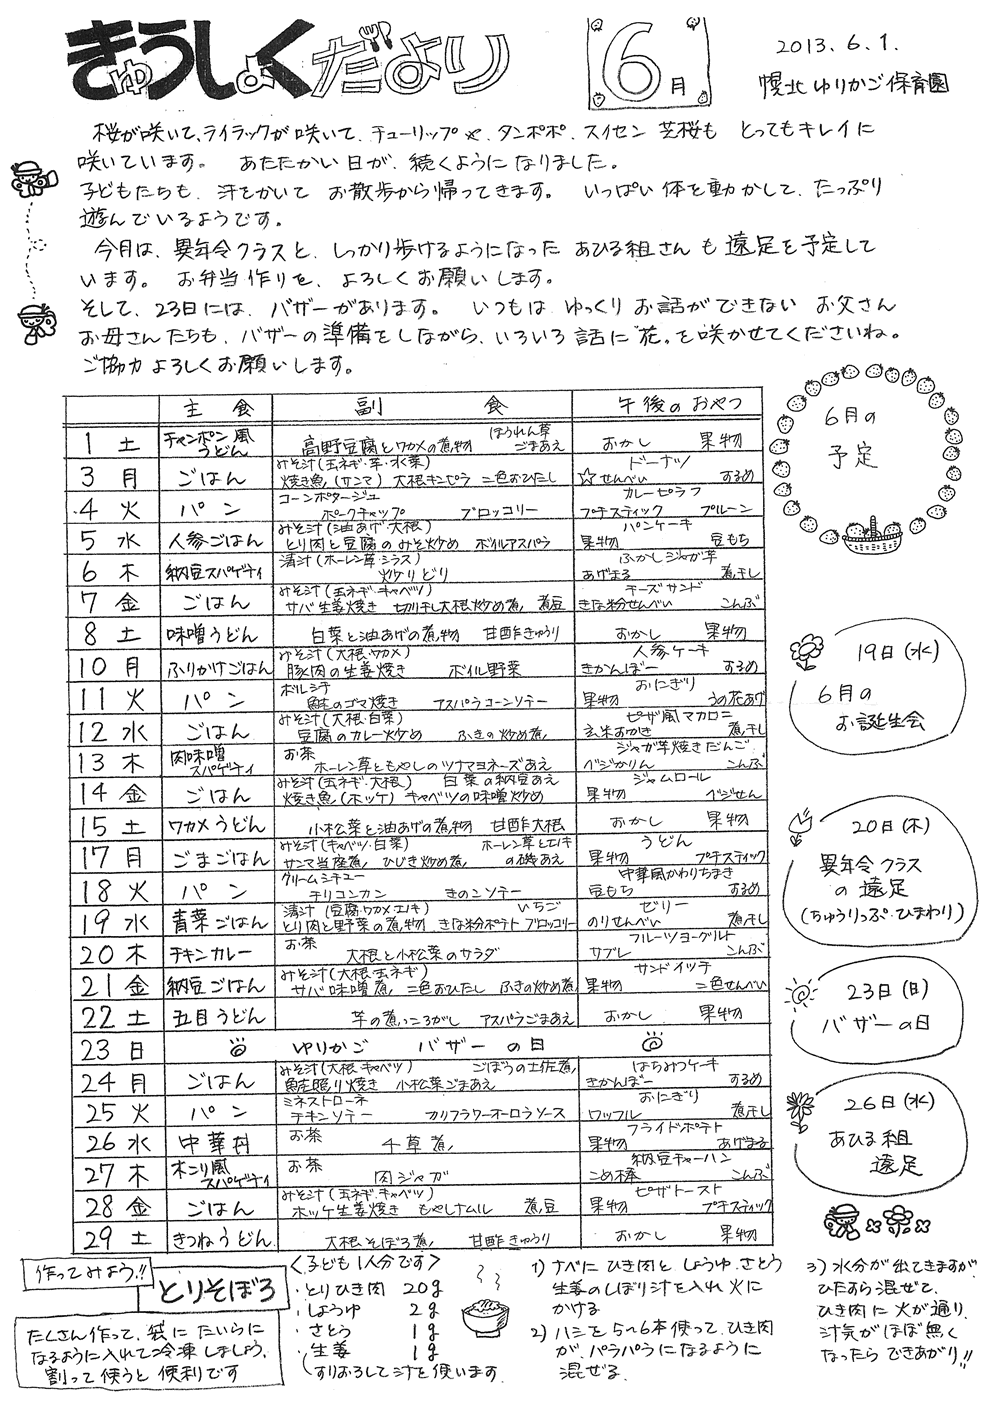 きゅうしょくだより
6月
2013.6.1.
幌北ゆりかご保育園
桜が咲いて、ライラックが咲いて、チューリップや、タンポポ、スイセン 芝桜も とってもキレイに
咲いています。 あたたかい日が、続くようになりました。
子どもたちも、汗をかいて お散歩から帰ってきます。 いっぱい体を動かして、たっぷり
遊んでいるようです。
今月は、異年令クラスと、しっかり歩けるようになった あひる組さんも遠足を予定して
います。 お弁当作りを、よろしくお願いします。
そして、23日には、バザーがあります。 いつもは ゆっくりお話ができない お父さん
お母さんたちも、バザーの準備をしながら、いろいろ話に"花"を咲かせてくださいね。
ご協力よろしくお願いします。
主食 副食 午後のおやつ
1 土 チャンポン風うどん 高野豆腐とワカメの煮物 ほうれん草ごまあえ おかし 果物
3 月 ごはん みそ汁(玉ネギ・芋・水菜) 焼き魚(サンマ) 大根キンピラ 二色おひたし ドーナツ ☆せんべい するめ
4 火 パン コーンポタージュ ポークチャップ ブロッコリー カレーピラフ プチスティック プルーン
5 水 人参ごはん みそ汁(油あげ・大根) とり肉と豆腐のみそ炒め ボイルアスパラ パンケーキ 果物 豆もち
6 木 納豆スパゲティ 清汁(ホーレン草・シラス) 炒りどり ふかしジャガ芋 あげまる 煮干し
7 金 ごはん みそ汁(玉ネギ・キャベツ) サバ生姜焼き 切り干し大根炒め煮 煮豆 チーズサンド きな粉せんべい こんぶ
8 土 味噌うどん 白菜と油あげの煮物 甘酢きゅうり おかし 果物
10 月 ふりかけごはん みそ汁(大根・ワカメ) 豚肉の生姜焼き ボイル野菜 人参ケーキ きかんぼー するめ
11 火 パン ボルシチ 鮭のゴマ焼き アスパラコーンソテー おにぎり 果物 うの花あげ
12 水 ごはん みそ汁(大根・白菜) 豆腐のカレー炒め ふきの炒め煮 ピザ風マカロニ 玄米おかき 煮干し
13 木 肉味噌スパゲティ お茶 ホーレン草ともやしのツナマヨネーズあえ ジャガ芋焼きだんご ベジかりん こんぶ
14 金 ごはん みそ汁(玉ネギ・大根) 白菜の納豆あえ 焼き魚(ホッケ) キャベツの味噌炒め ジャムロール 果物 ベジせん
15 土 ワカメうどん 小松菜と油あげの煮物 甘酢大根 おかし 果物
17 月 ごまごはん みそ汁(キャベツ・白菜) サンマ当座煮 ひじき炒め煮 ホーレン草とエノキの磯あえ うどん 果物 プチスティック
18 火 パン クリームシチュー チリコンカン きのこソテー 中華風かわりちまき 豆もち するめ
19 水 青菜ごはん 清汁(豆腐・ワカメ・エノキ) いちご とり肉と野菜の煮物 きな粉ポテト ブロッコリー ゼリー のりせんべい 煮干し
20 木 チキンカレー お茶 大根と小松菜のサラダ フルーツヨーグルト サブレ こんぶ
21 金 納豆ごはん みそ汁(大根・玉ネギ) サバ味噌煮 二色おひたし ふきの炒め煮 サンドイッチ 果物 二色せんべい
22 土 五目うどん 芋の煮っころがし アスパラごまあえ おかし 果物
23 日 ゆりかご バザーの日
24 月 ごはん みそ汁(大根・キャベツ) ごぼうの土佐煮 鮭照り焼き 小松菜ごまあえ はちみつケーキ きかんぼー するめ
25 火 パン ミネストローネ チキンソテー カリフラワーオーロラソース おにぎり ワッフル 煮干し
26 水 中華丼 お茶 千草煮 フライドポテト 果物 あげまる
27 木 木こり風スパゲティ お茶 肉ジャガ 納豆チャーハン こめ棒 こんぶ
28 金 ごはん みそ汁(玉ネギ・キャベツ) ホッケ生姜焼き もやしナムル 煮豆 ピザトースト 果物 プチスティック
29 土 きつねうどん 大根そぼろ煮 甘酢きゅうり おかし 果物
6月の
予定
19日(水)
6月の
お誕生会
20日(木)
異年令クラス
の遠足
(ちゅうりっぷ・ひまわり)
23日(日)
バザーの日
26日(水)
あひる組
遠足
作ってみよう!!
とりそぼろ
たくさん作って、袋にたいらに
なるように入れて冷凍しましょう。
割って使うと便利です
<子ども1人分です>
・とりひき肉 20g
・しょうゆ 2g
・さとう 1g
・生姜 1g
(すりおろして汁を使います
1) ナベにひき肉と しょうゆ、さとう
生姜のしぼり汁を入れ火に
かける
2) ハシを5〜6本使って、ひき肉
が、パラパラになるように
混ぜる。
3) 水分が出てきますが
ひたすら混ぜて、
ひき肉に火が通り、
汁気がほぼ無く
なったらできあがり!!